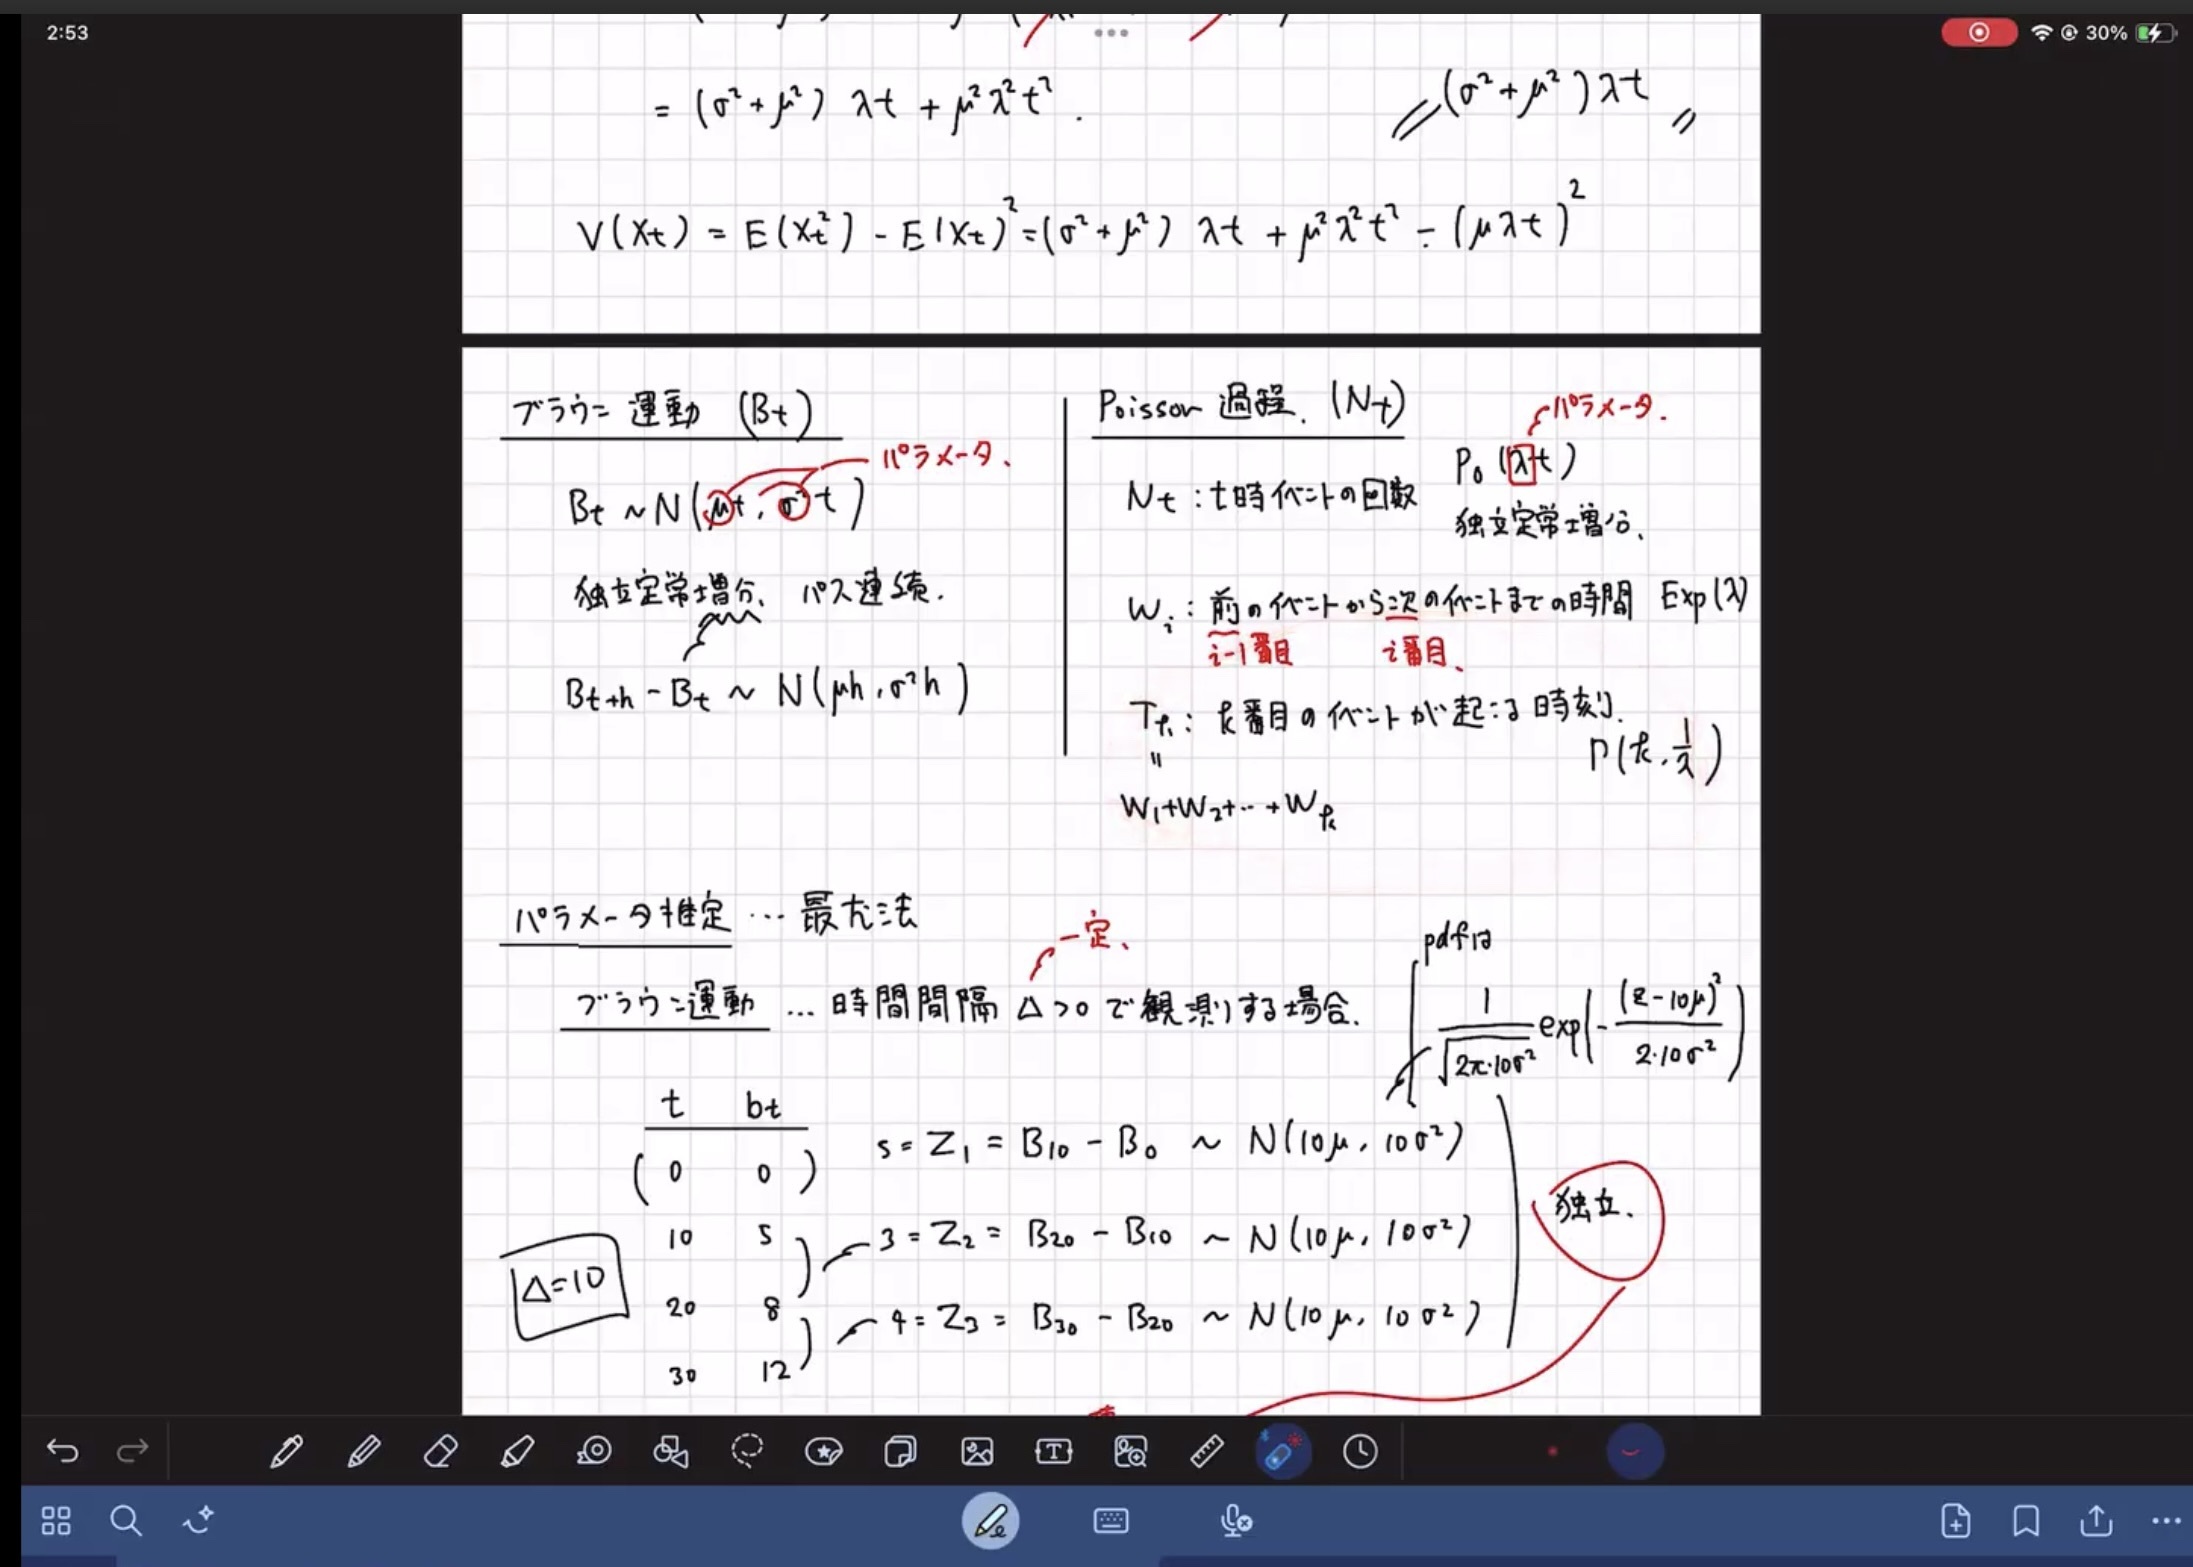 2:53
30%
= (σ² + μ²) λt + μ²λ²t².
(σ² + μ²) λt
V(Xt) = E(Xt²) - E(Xt)² = (σ² + μ²) λt + μ²λ²t² - (μλt)²
ブラウン運動 (Bt)
パラメータ.
Bt ~ N(μt, σ²t)
独立定常増分、パス連続.
Bt+h - Bt ~ N(μh, σ²h)
Poisson 過程. (Nt)
パラメータ.
Nt : t時イベントの回数 Po(λt)
独立定常増分、
Wi : 前のイベントから次のイベントまでの時間 Exp(λ)
i-1番目 i番目、
Tk : k番目のイベントが起こる時刻.
Γ(k, 1/λ)
"
W1+W2+…+Wk
パラメータ推定 … 最尤法
一定、
ブラウン運動 … 時間間隔 Δ>0 で観測する場合.
pdfは
1/√(2π・10σ²) exp(-(z-10μ)²/(2・10σ²))
t bt
(0 0)
10 5
20 8
30 12
Δ=10
5 = Z1 = B10 - B0 ~ N(10μ, 10σ²)
3 = Z2 = B20 - B10 ~ N(10μ, 10σ²)
4 = Z3 = B30 - B20 ~ N(10μ, 10σ²)
独立.